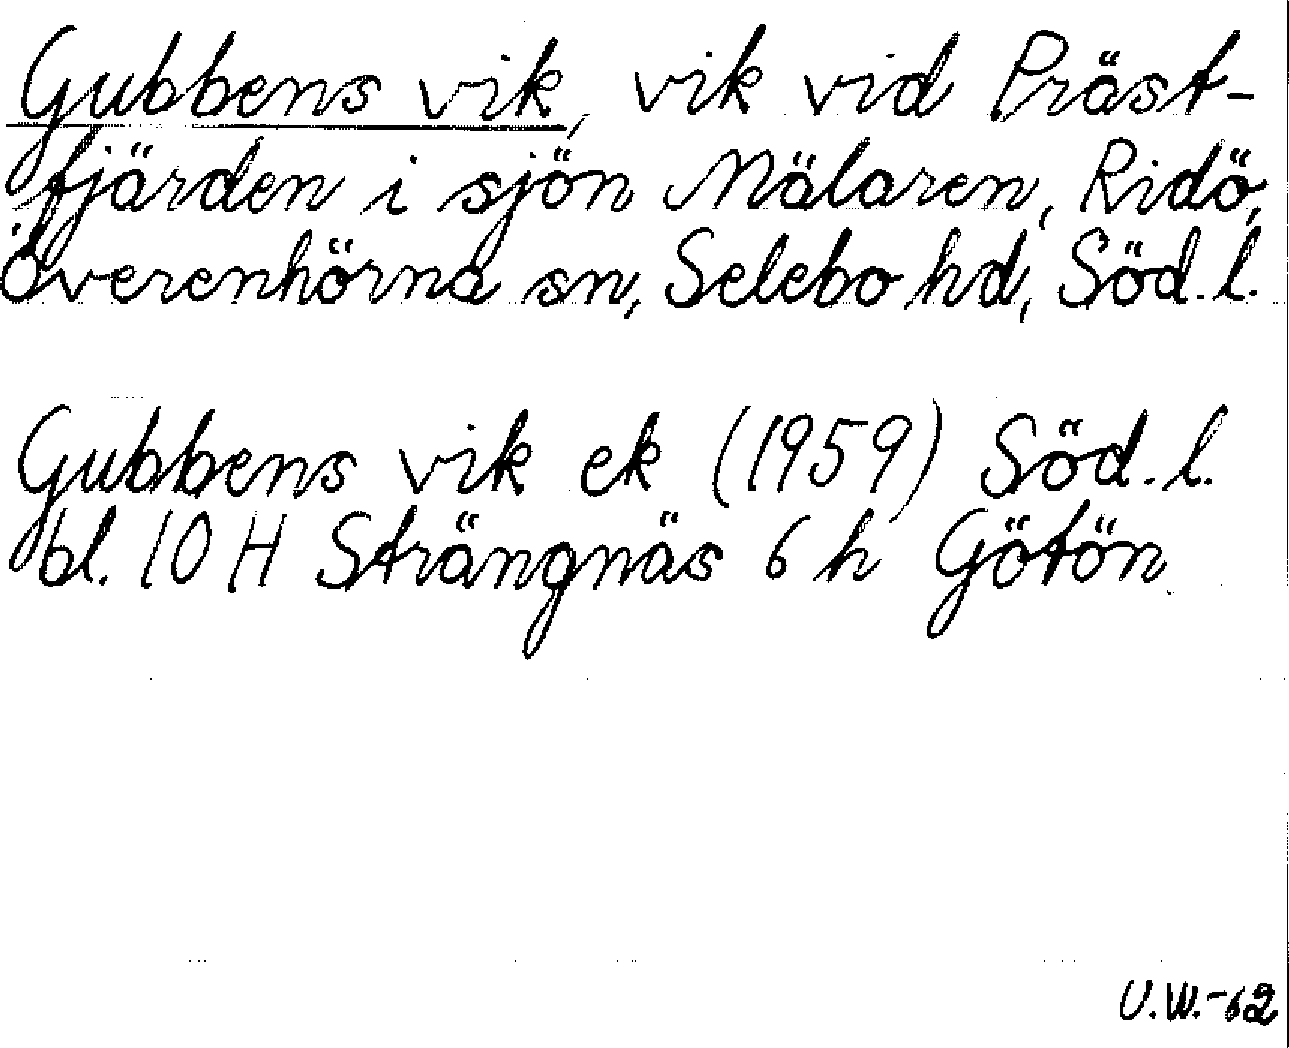 Gubbens vik, vik vid Präst-
fjärden i sjön Mälaren, Ridö,
Överenhörna sn, Selebo hd, Söd. l.
Gubbens vik ek (1959) Söd. l.
bl. 10 H Strängnäs 6 h Götön
U.W.-62